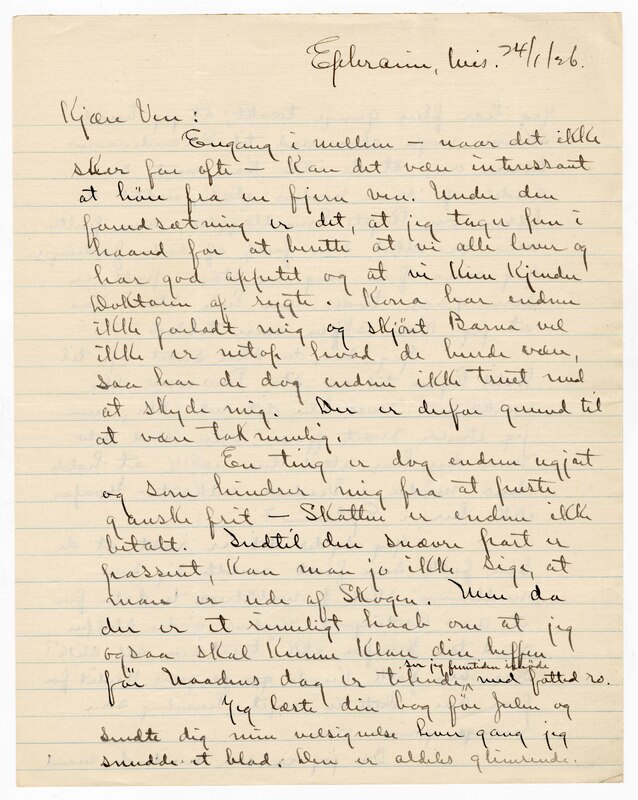 Ephraim, Wis. 24/1/26.
Kjære Ven:
Engang imellem – naar det ikke
sker for ofte – kan det være interessant
at höre fra en fjern ven. Under den
forudsætning er det, at jeg tager pen i
haand for at berette at vi alle lever og
har god appetit og at vi kun kjender
Doktoren af rygte. Kona har endnu
ikke forladt mig og skjönt Barna vel
ikke er netop hvad de burde være,
saa har de dog endnu ikke truet med
at skyde mig. Der er derfor grund til
at være taknemlig.
En ting er dog endnu ugjort
og som hindrer mig fra at puste
ganske frit – Skatten er endnu ikke
betalt. Indtil den snævre port er
passeret, kan man jo ikke sige, at
man er ude af Skogen. Men da
der er et rimeligt haab om at jeg
ogsaa skal kunne klare den
för Naadens dag er tilende, ser jeg fremtiden imöde med fatted ro.
Jeg læste din bog för Julen og
sendte dig min velsignelse hver gang jeg
snudde et blad. Den er aldeles glimrende.